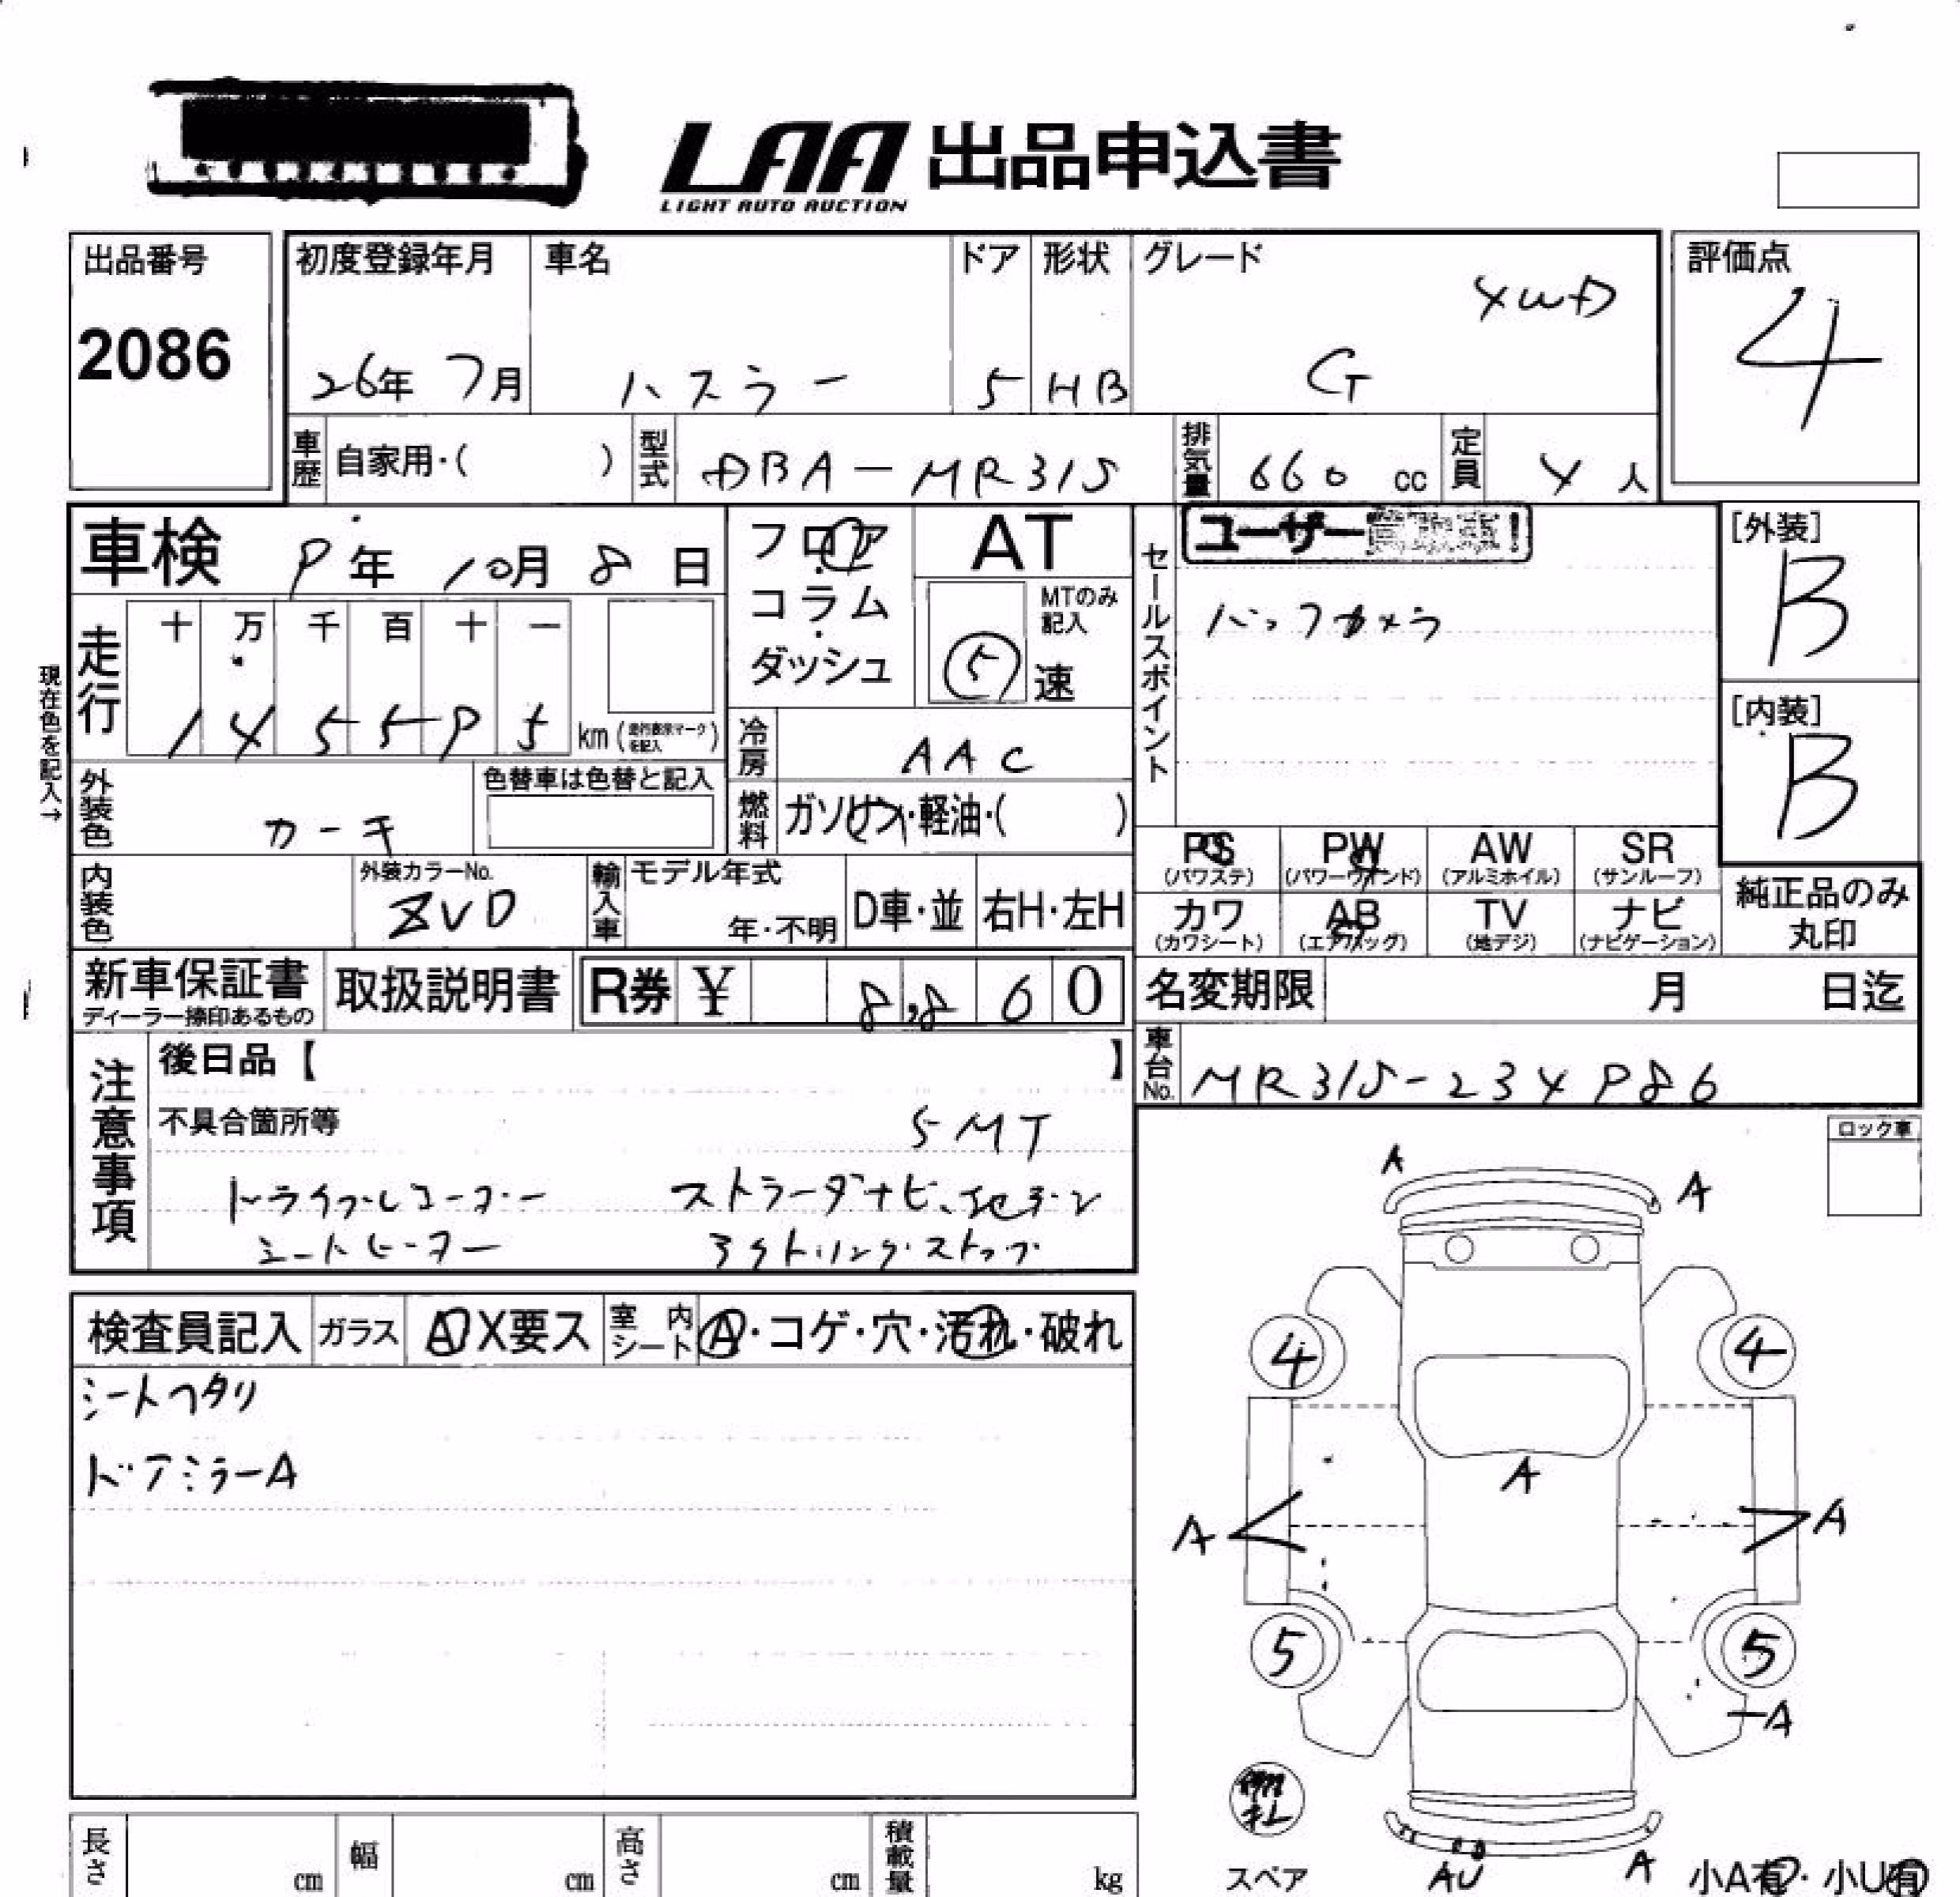 LAA 出品申込書
LIGHT AUTO AUCTION
出品番号
2086
初度登録年月
26年 7月
車名
ハスラー
ドア
5
形状
HB
グレード
4WD
G
評価点
4
車歴 自家用・( )
型式 DBA-MR31S
排気量 660 cc
定員 4 人
車検 9年 10月 8日
フロア・コラム・ダッシュ
AT
MTのみ記入
5 速
セールスポイント
ユーザー
バックカメラ
[外装]
B
[内装]
B
現在色を記入→
走行 十 万 千 百 十 一
1 4 5 5 9 5 km (走行表示マークを記入)
冷房 AAC
外装色 カーキ
色替車は色替と記入
燃料 ガソリン・軽油・( )
PS (パワステ)
PW (パワーウインド)
AW (アルミホイル)
SR (サンルーフ)
カワ (カワシート)
AB (エアバッグ)
TV (地デジ)
ナビ (ナビゲーション)
純正品のみ丸印
内装色
外装カラーNo.
ZVD
輸入車 モデル年式
年・不明
D車・並
右H・左H
新車保証書
ディーラー捺印あるもの
取扱説明書
R券 ¥ 8,860
名変期限 月 日迄
車台No. MR31S-234986
注意事項
後日品【 】
不具合箇所等 5MT
ドライブレコーダー ストラーダナビ、地デジ
シートヒーター アイドリングストップ
ロック車
検査員記入 ガラス A X要ス 室内シート A・コゲ・穴・汚れ・破れ
シートヘタリ
ドアミラーA
A
A
4
4
A
A
A
5
5
A
スペア
AU
A
小A有・小U有
長さ cm
幅 cm
高さ cm
積載量 kg